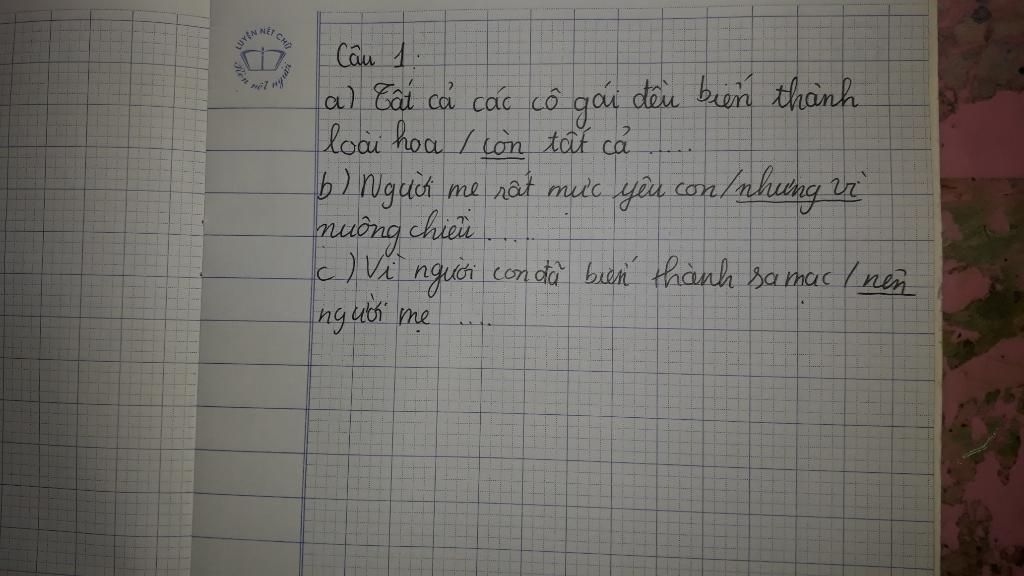 LUYỆN NÉT CHỮ
Rèn nét người
Câu 1.
a) Tất cả các cô gái đều biến thành
loài hoa / còn tất cả .....
b) Người mẹ rất mực yêu con / nhưng vì
nuông chiều .....
c) Vì người con đã biến thành sa mạc / nên
người mẹ ....